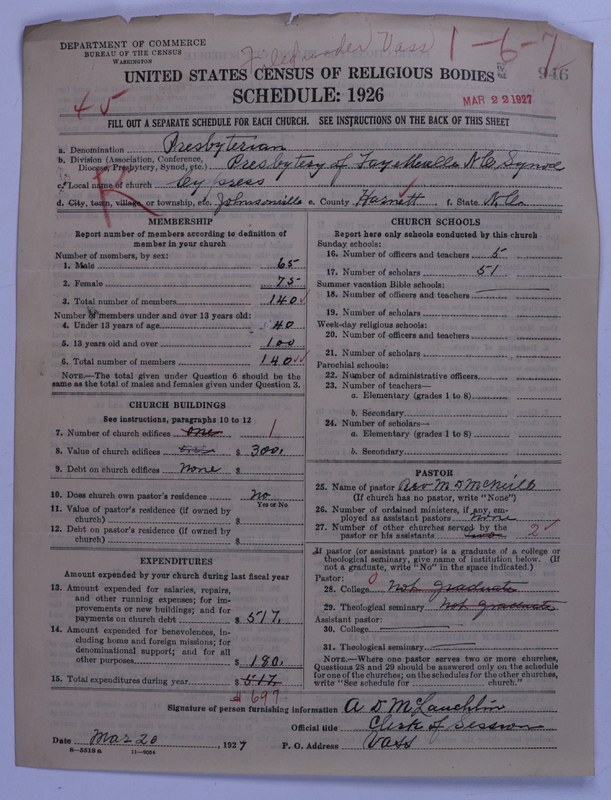 DEPARTMENT OF COMMERCE
BUREAU OF THE CENSUS
WASHINGTON
Filed under Vass
1-6-7
UNITED STATES CENSUS OF RELIGIOUS BODIES
946
45
SCHEDULE: 1926
MAR 22 1927
FILL OUT A SEPARATE SCHEDULE FOR EACH CHURCH. SEE INSTRUCTIONS ON THE BACK OF THIS SHEET
a. Denomination Presbyterian
b. Division (Association, Conference,
Diocese, Presbytery, Synod, etc.) Presbytery of Fayetteville N.C. Synod
c. Local name of church Cypress
R
d. City, town, village, or township, etc. Johnsonville e. County Harnett f. State N.C.
MEMBERSHIP
Report number of members according to definition of
member in your church
Number of members, by sex:
1. Male 65
2. Female 75
3. Total number of members 140
Number of members under and over 13 years old:
4. Under 13 years of age 40
5. 13 years old and over 100
6. Total number of members 140
NOTE.—The total given under Question 6 should be the
same as the total of males and females given under Question 3.
CHURCH BUILDINGS
See instructions, paragraphs 10 to 12
7. Number of church edifices one 1
8. Value of church edifices $ 300.
9. Debt on church edifices None $
10. Does church own pastor's residence No
Yes or No
11. Value of pastor's residence (if owned by
church) $
12. Debt on pastor's residence (if owned by
church) $
EXPENDITURES
Amount expended by your church during last fiscal year
13. Amount expended for salaries, repairs,
and other running expenses; for im-
provements or new buildings; and for
payments on church debt $ 517.
14. Amount expended for benevolences, in-
cluding home and foreign missions; for
denominational support; and for all
other purposes $ 180.
15. Total expenditures during year $ 517.
$ 697.
CHURCH SCHOOLS
Report here only schools conducted by this church
Sunday schools:
16. Number of officers and teachers 5
17. Number of scholars 51
Summer vacation Bible schools:
18. Number of officers and teachers
19. Number of scholars
Week-day religious schools:
20. Number of officers and teachers
21. Number of scholars
Parochial schools:
22. Number of administrative officers
23. Number of teachers—
a. Elementary (grades 1 to 8)
b. Secondary
24. Number of scholars—
a. Elementary (grades 1 to 8)
b. Secondary
PASTOR
25. Name of pastor Rev M D McNeill
(If church has no pastor, write "None")
26. Number of ordained ministers, if any, em-
ployed as assistant pastors none
27. Number of other churches served by the
pastor or his assistants two 2
If pastor (or assistant pastor) is a graduate of a college or
theological seminary, give name of institution below. (If
not a graduate, write "No" in the space indicated.)
Pastor: 0
28. College Not graduate
29. Theological seminary Not graduate
Assistant pastor:
30. College
31. Theological seminary
NOTE.—Where one pastor serves two or more churches,
Questions 28 and 29 should be answered only on the schedule
for one of the churches; on the schedules for the other churches,
write "See schedule for church."
Signature of person furnishing information A D McLauchlin
Official title Clerk of Session
Date Mar 20, 1927 P. O. Address Vass
8-5518a 11-9054